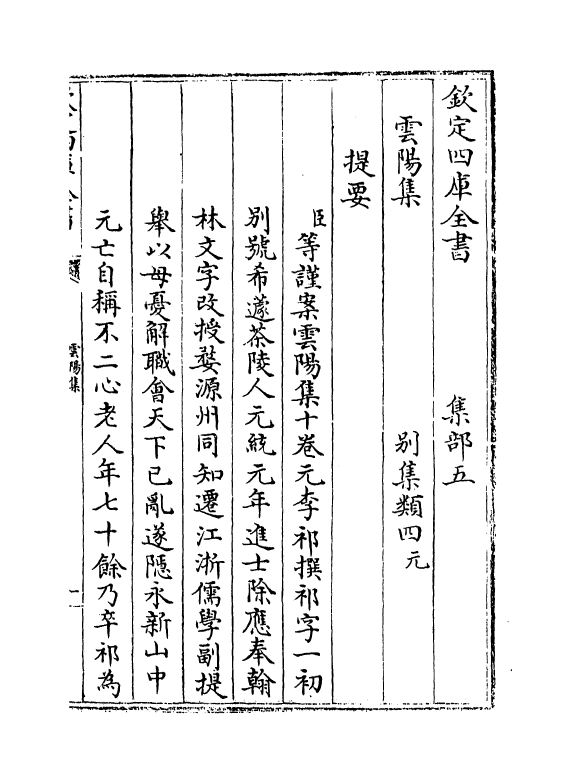 欽定四庫全書　集部五
雲陽集　别集類四元
提要
臣等謹案雲陽集十卷元李祁撰祁字一初
别號希蘧茶陵人元統元年進士除應奉翰
林文字改授婺源州同知遷江浙儒學副提
舉以母憂解職會天下已亂遂隱永新山中
元亡自稱不二心老人年七十餘乃卒祁為
雲陽集
一